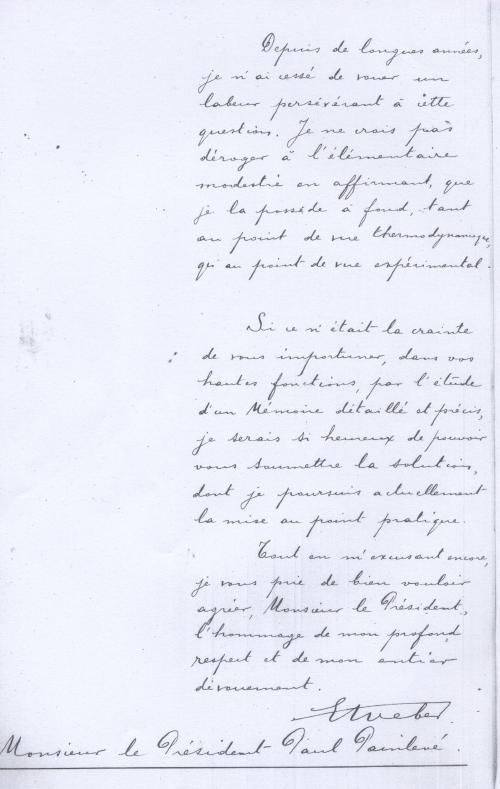 Depuis de longues années,
je n'ai cessé de vouer un
labeur persévérant à cette
question. Je ne crois pas
déroger à l'élémentaire
modestie en affirmant, que
je la possède à fond, tant
au point de vue thermodynamique,
qu'au point de vue expérimental.
Si ce n'était la crainte
de vous importuner, dans vos
hautes fonctions, par l'étude
d'un Mémoire détaillé et précis,
je serais si heureux de pouvoir
vous soumettre la solution,
dont je poursuis actuellement
la mise au point pratique.
Tout en m'excusant encore,
je vous prie de bien vouloir
agréer, Monsieur le Président,
l'hommage de mon profond
respect et de mon entier
dévouement.
Monsieur le Président Paul Painlevé.